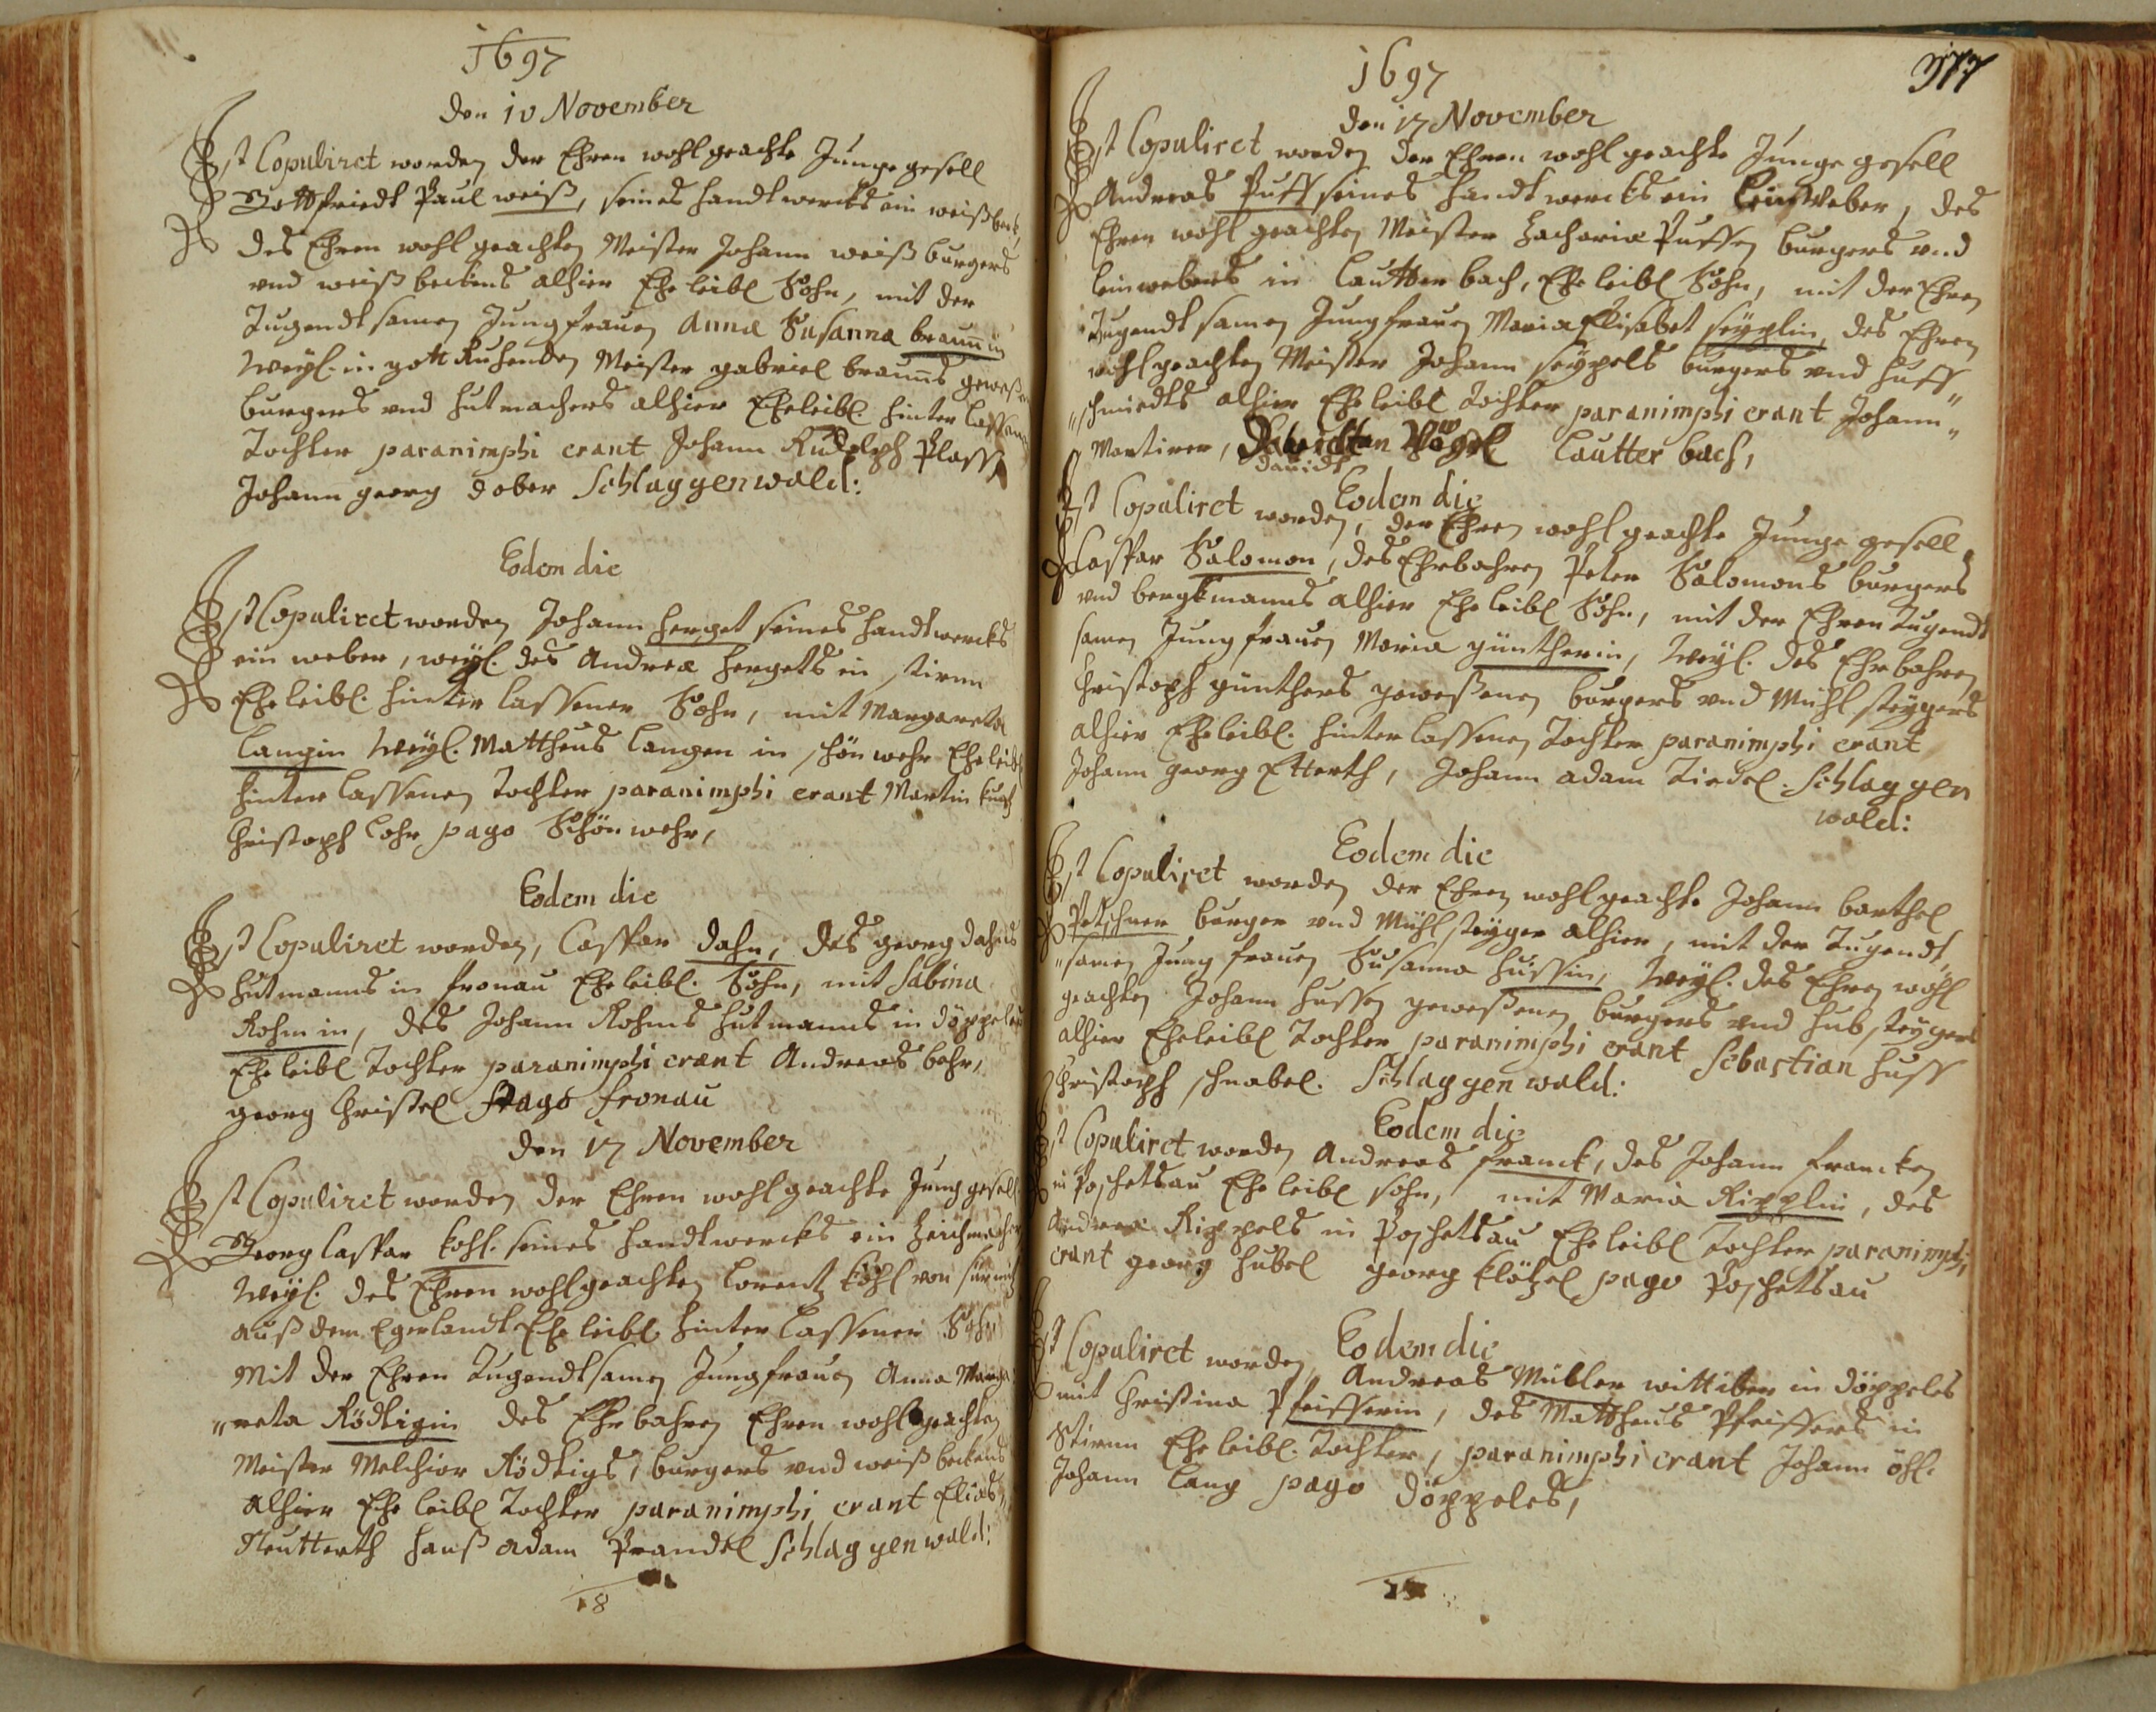 1697
den 10 November
Ist Copuliret worden der Ehren wohl geachte Junge gesell
Gottfriedt Paul weiß, seines handtwercks ein weißbeck,
des Ehren wohl geachten Meister Johann weiß burgers
vnd weiß beckens alhier Eheleibl Sohn, mit der
Tugendtsamen Jungfrauen Anna Susanna braunin
Weyl. in gott Ruhenden Meister gabriel brauns geweß
burgers vnd hutmachers alhier Eheleibl. hinter lassene
Tochter paranimphi erant Johann Rudolph Plass
Johann georg dober Schlaggenwald:
Eodem die
Ist Copuliret worden Johann herget seines handtwercks
ein weber, weyl. des Andreæ hergets in stirnn
Eheleibl. hinter lassener Sohn, mit Margareta
Langin Weyl. Mattheus Langen in schönwehr Eheleibl
hinter lassenen Tochter paranimphi erant Martin
Christoph Lohr pago Schönwehr,
Eodem die
Ist Copuliret worden, Caspar dahn, des georg dahns
hutmanns in fronau Eheleibl. Sohn, mit Sabina
Rohmin, des Johann Rohms hutmanns in döppeles
Eheleibl Tochter paranimphi erant Andreas behr,
georg Christel Pago fronau
den 17 November
Ist Copuliret worden der Ehren wohl geachte Jung gesell
Georg Caspar kohl. seines handtwercks ein Zeichmacher
Weyl. des Ehren wohl geachten Lorentz köhl von
auß dem Egerlandt Eheleibl hinter Lassener Sohn
Mit der Ehren Tugendtsamen Jungfrauen Anna Marga
"reta Rödtigin des Ehrbahren Ehren wohl geachten
Meister Melchior Rödtigs, burgers vnd weiß beckens
alhier Eheleibl Tochter paranimphi erant Elias,
Neutterth hanß adam Prandel Schlaggenwald:
18
1697
377
den 17 November
Ist Copuliret worden der Ehren wohl geachte Junge gesell
Andreas Puss seines handtwercks ein Leinweber, des
Ehren wohl geachten Meister Zachariæ Pussen burgers vnd
leinwebers in Lautterbach, Eheleibl Sohn, mit der Ehren
Tugendtsamen Jungfrauen Maria Elisabet seyplin, des Ehren
wohl geachten Meister Johann seypels burgers vnd huff"
"schmiedts alhier Eheleibl Tochter paranimphi erant Johann"
Martirer, Vogel Lautter bach,
dauidt
Eodem die
Ist Copuliret worden, der Ehren wohl geachte Junge gesell
Caspar Salomon, des Ehrbahren Peter Salomons burgers
vnd bergkmanns alhier Eheleibl Sohn, mit der Ehren Tugendt
samen Jungfrauen Maria güntherin, Weyl. des Ehrbahren
Christoph günthers geweßenen burgers vnd Mühl steygers
alhier Eheleibl. hinter lassenen Tochter paranimphi erant
Johann georg Etterth, Johann adam Tiedel. Schlaggen
wald:
Eodem die
Ist Copuliret worden der Ehren wohl geachte Johann barthel
Petschner burger vnd Mühl steyger alhier, mit der Tugendt,
"samen Jungfrauen Susanna hussin, Weyl. des Ehren wohl
geachten Johann hussen geweßenen burgers vnd hub steygers
alhier Eheleibl Tochter paranimphi erant Sebastian huss
Christoph schnabel. Schlaggenwald:
Eodem die
Ist Copuliret worden Andreas franck, des Johann francken
in Poschetsau Eheleibl sohn, mit Maria Ripplin, des
Andreæ Rippels in Poschetsau Eheleibl Tochter paranimphi
erant georg hubel georg klötzel pago Poschetsau
Eodem die
Ist Copuliret worden Andreas Müller wittiber in döppeles
mit Christina Pfeifferin, des Mattheus Pfeiffers in
Stirnn Eheleibl. Tochter, paranimphi erant Johann öhl.
Johann Lang pago döppeles,